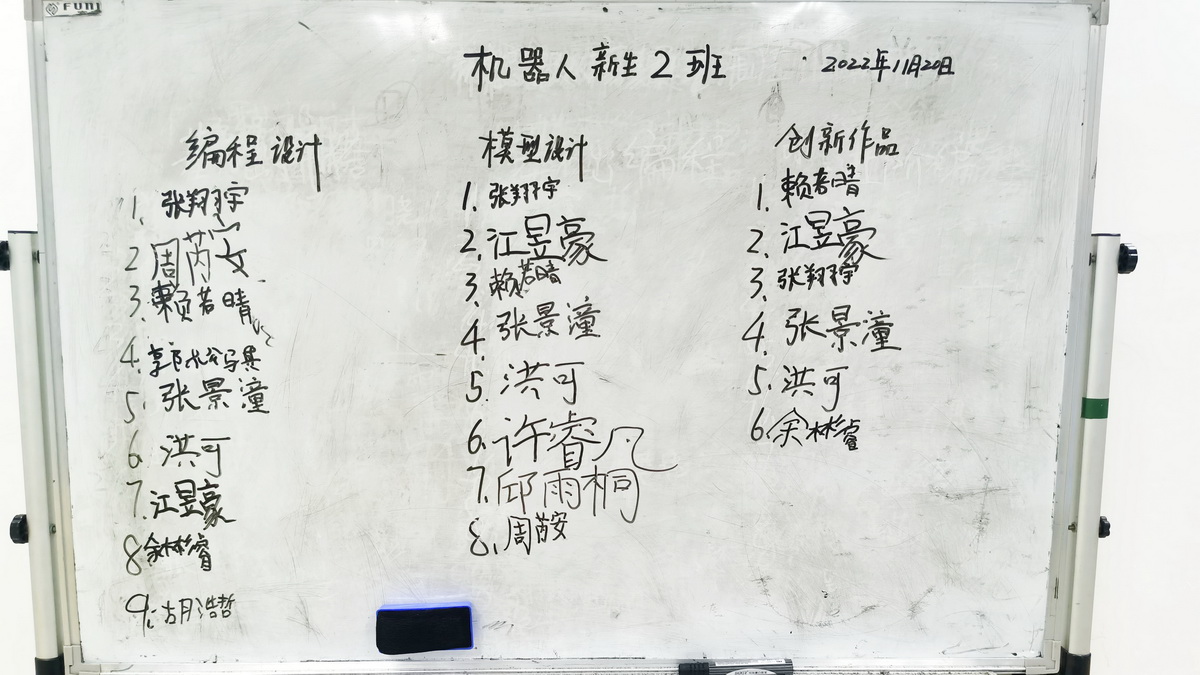 FUNI
机器人新生2班
2022年11月20日
编程设计
1. 张翔宇
2 周芮安
3. 赖若晴
4. 郭
5. 张景潼
6. 洪可
7. 江昱豪
8 余彬睿
9. 胡浩哲
模型设计
1. 张翔宇
2. 江昱豪
3. 赖若晴
4. 张景潼
5. 洪可
6. 许睿凡
7. 邱雨桐
8. 周芮安
创新作品
1. 赖若晴
2. 江昱豪
3. 张翔宇
4. 张景潼
5. 洪可
6. 余彬睿